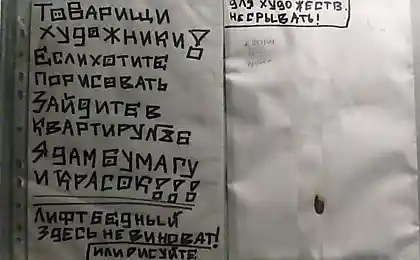 ТОВАРИЩИ
ХУДОЖНИКИ!
ЕСЛИ ХОТИТЕ
ПОРИСОВАТЬ
ЗАЙДИТЕ В
КВАРТИРУ №36
Я ДАМ БУМАГУ
И КРАСОК!!!
ЛИФТ БЕДНЫЙ
ЗДЕСЬ НЕ ВИНОВАТ!
ИЛИ РИСУЙТЕ
ДЛЯ ХУДОЖЕСТВ.
НЕ СРЫВАТЬ!